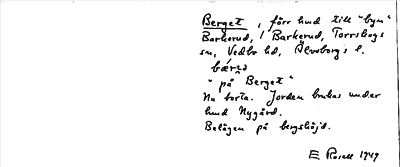 Berget, förr hmd till "byn"
Barkerud, 1 Barkerud, Torrskogs
sn, Vedbo hd, Älvsborgs l.
"på Berget"
Nu borta. Jorden brukas under
hmd Nygård.
Belägen på bergshöjd.
E Rosell 1949